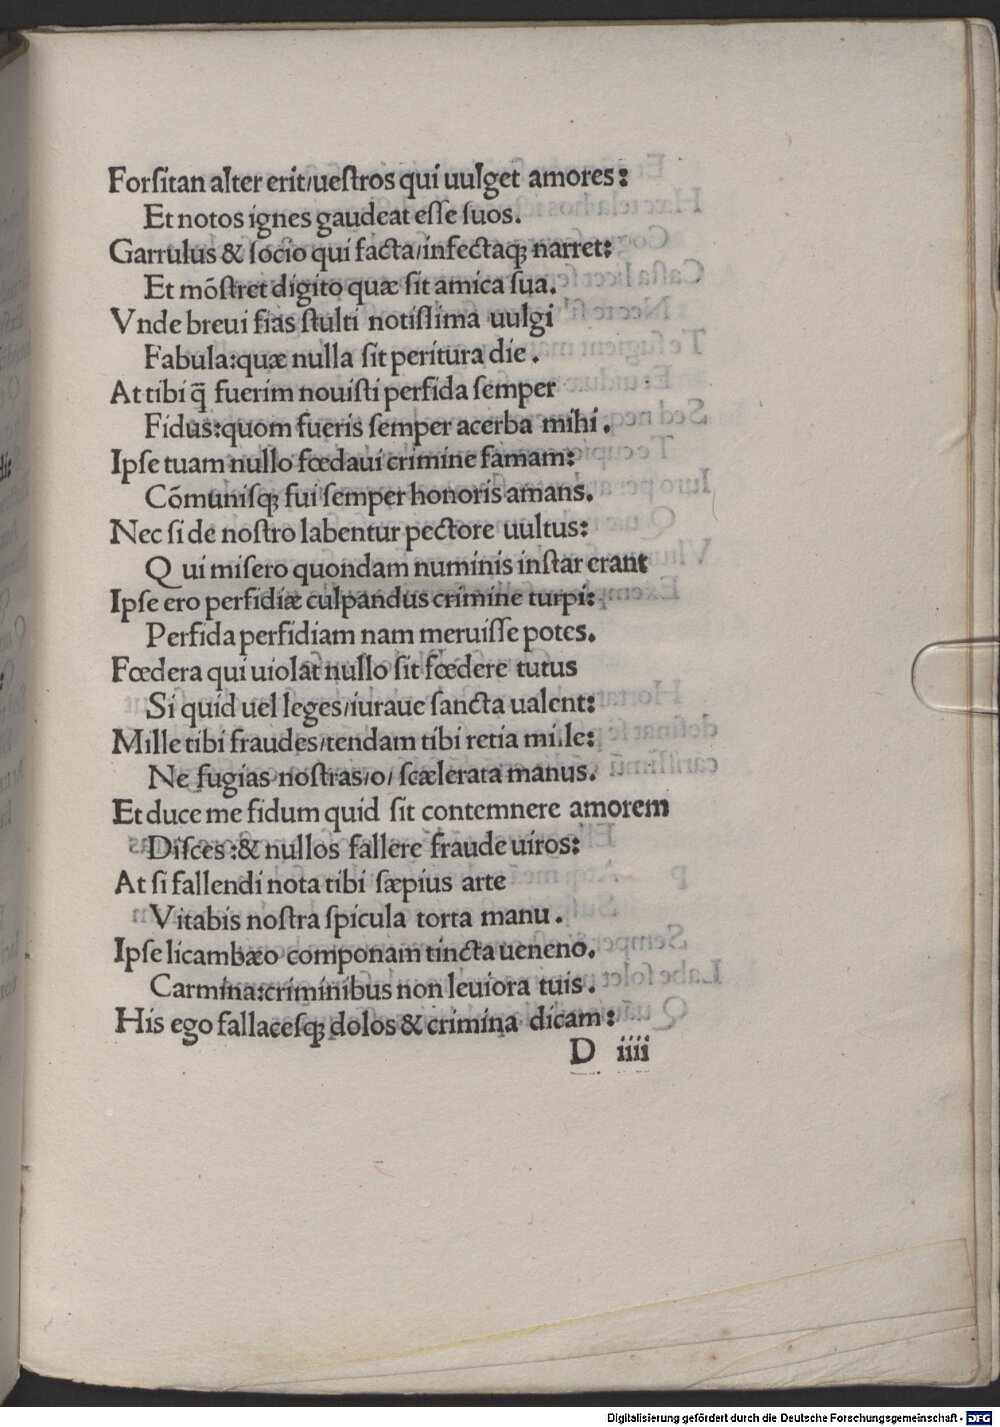 Forſitan alter erit/ueſtros qui uulget amores:
Et notos ignes gaudeat eſſe ſuos.
Garrulus & ſocio qui facta/infectaqꝫ narret:
Et mōſtret digito quæ ſit amica ſua.
Vnde breui fias ſtulti notiſſima uulgi
Fabula:quæ nulla ſit peritura die.
At tibi q̄ fuerim nouiſti perfida ſemper
Fidus:quom fueris ſemper acerba mihi.
Ipſe tuam nullo fœdaui crimine famam:
Cōmuniſqꝫ fui ſemper honoris amans.
Nec ſi de noſtro labentur pectore uultus:
Q ui miſero quondam numinis inſtar erant
Ipſe ero perfidiæ culpandus crimine turpi:
Perfida perfidiam nam meruiſſe potes.
Fœdera qui uiolat nullo ſit fœdere tutus
Si quid uel leges/iuraue ſancta ualent:
Mille tibi fraudes/tendam tibi retia mille:
Ne fugias noſtras/o/ ſcælerata manus.
Et duce me fidum quid ſit contemnere amorem
Diſces :& nullos fallere fraude uiros:
At ſi fallendi nota tibi ſæpius arte
Vitabis noſtra ſpicula torta manu.
Ipſe licambæo componam tincta ueneno.
Carmina:criminibus non leuiora tuis.
His ego fallaceſqꝫ dolos & crimina dicam:
D iiii
Digitalisierung gefördert durch die Deutsche Forschungsgemeinschaft - DFG